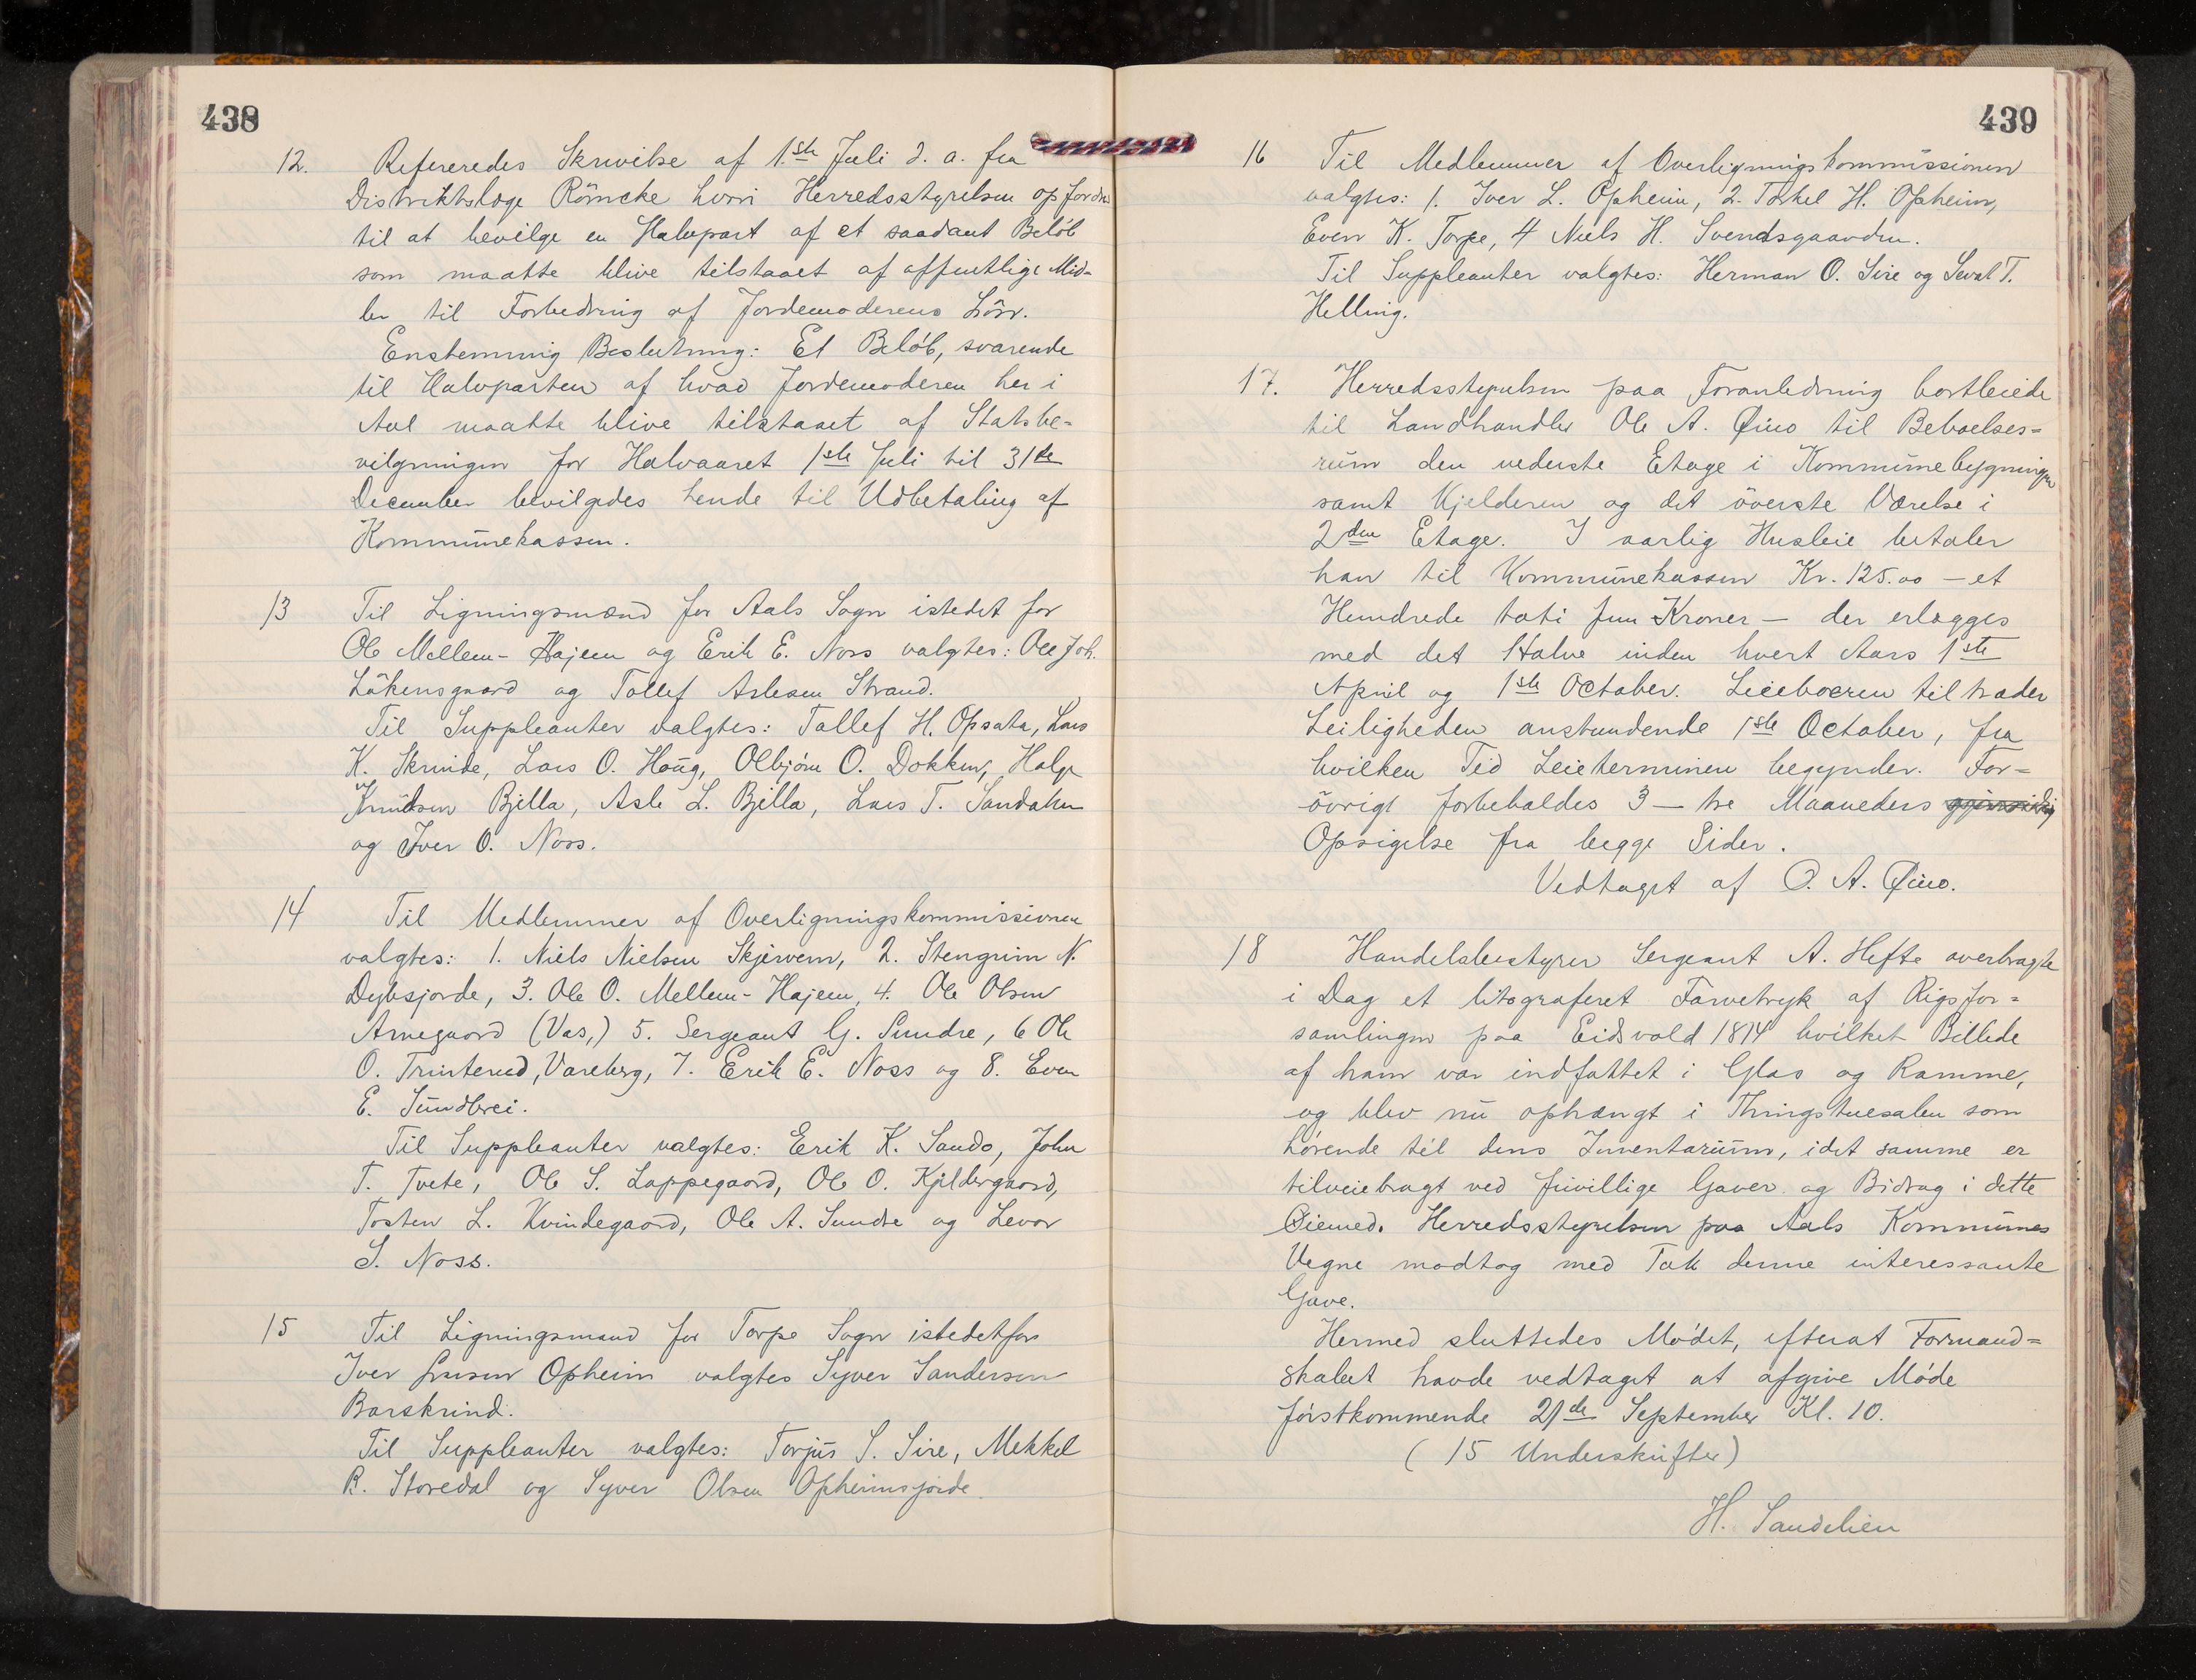 438
12. Refereredes Skrivelse af 1ste Juli d. a. fra
Distriktslæge Römcke hvori Herredsstyrelsen opfordres
til at bevilge en Halvpart af et saadant Beløb
som maatte blive tilstaaet af offentlige Mid=
ler til Forbedring af Jordemoderens Lön.
Enstemmig Beslutning: Et Beløb, svarende
til Halvparten af hvad Jordemoderen her i
Aal maatte blive tilstaaet af Statsbe=
vilgningen for Halvaaret 1ste Juli til 31te
December bevilgedes hende til Udbetaling af
Kommunekassen.
13 Til Ligningsmænd for Aals Sogn istedet for
Ole Mellem-Hajem og Erik E. Noss valgtes: Ole Joh.
Lökensgaard og Tollef Aslesen Strand.
Til Suppleanter valgtes: Tollef H. Opsata, Lars
K. Skrinde, Lars O. Haug, Olbjörn O. Dokken, Halge
Knudsen Bjella, Asle L. Bjella, Lars T. Sandahn
og Iver O. Noss.
14 Til Medlemmer af Overligningskommissionen
valgtes: 1. Niels Nielsen Skjerven, 2. Stengrim N.
Dybsjorde, 3. Ole O. Mellem-Hajem, 4. Ole Olsen
Arnegaard (Vas,) 5. Sergeant G. Sundre, 6 Ole
O. Trinterud, Vareberg, 7. Erik E. Noss og 8. Even
E. Sundbrei.
Til Suppleanter valgtes: Erik K. Sando, John
T. Tvete, Ole S. Lappegaard, Ole O. Kjeldergaard,
Tosten L. Kvindegaard, Ole A. Sundre og Levor
S. Noss.
15 Til Ligningsmand for Torpe Sogn istedetfor
Iver Opheim valgtes Syver Sandersen
Barskrind.
Til Suppleanter valgtes: Torjus S. Sire, Mekkel
R. Storedal og Syver Olsen Opheimsjorde.
439
16 Til Medlemmer af Overligningskommissionen
valgtes: 1. Iver L. Opheim, 2. Torkel H. Opheim,
Even K. Torpe, 4 Niels H. Svendsgaarden.
Til Suppleanter valgtes: Herman O. Sire og Sevat T.
Helling.
17. Herredsstyrelsen paa Foranledning bortleiede
til Landhandler Ole A. Øino til Beboelses=
rum den nederste Etage i Kommunebygningen
samt Kjelderen og det överste Værelse i
2den Etage. I aarlig Husleie betaler
han til Kommunekassen Kr. 125.00 — et
Hundrede tøti fem Kroner — der erlægges
med det Halve inden hvert Aars 1ste
April og 1ste October. Leieboeren tiltræder
Leiligheden anstundende 1ste October, fra
hvilken Tid Leieterminen begynder. For=
övrigt forbeholdes 3 — tre Maaneders gjensidig
Opsigelse fra begge Sider.
Vedtaget af O. A. Øino.
18 Handelsbestyrer Sergeant A. Hefte overbragte
i Dag et litograferet Farvetryk af Rigsfor=
samlingen paa Eidsvold 1814 hvilket Billede
af ham var indfattet i Glas og Ramme,
og blev nu ophængt i Thingstuesalen som
hørende til dens Inventarium, idet samme er
tilveiebragt ved frivillige Gaver og Bidrag i dette
Øiemed. Herredsstyrelsen paa Aals Kommunes
Vegne modtog med Tak denne interessante
Gave.
Hermed sluttedes Mødet, efterat Formand=
skabet havde vedtaget at afgive Møde
førstkommende 21de September Kl. 10.
(15 Underskrifter)
H. Sandelien